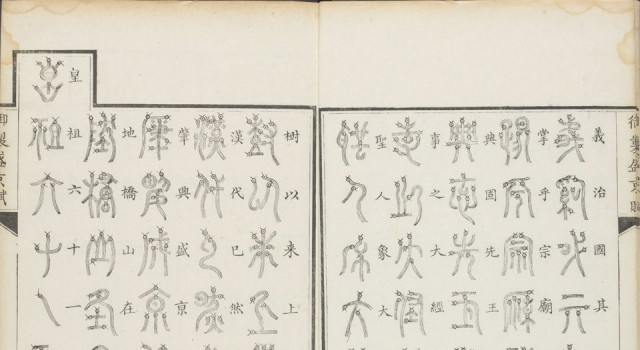 御製盛京賦
義治國其
掌乎宗廟
典固先王
事之大經
聖人象大
樹以来上
漢代已然
肇興盛京
地橋山在
皇祖六十一
御製盛京賦